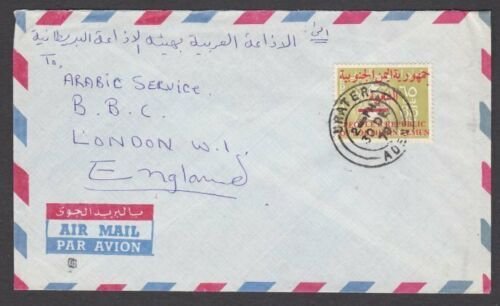 الى
الاذاعة العربية بهيئة الاذاعة البريطانية
To,
ARABIC SERVICE
B.B.C.
LONDON W.1.
England
جمهورية اليمن الجنوبية
الشعبية
٦٥
PEOPLE'S REPUBLIC
SOUTHERN YEMEN
CRATER
ADEN
بالبريد الجوى
AIR MAIL
PAR AVION